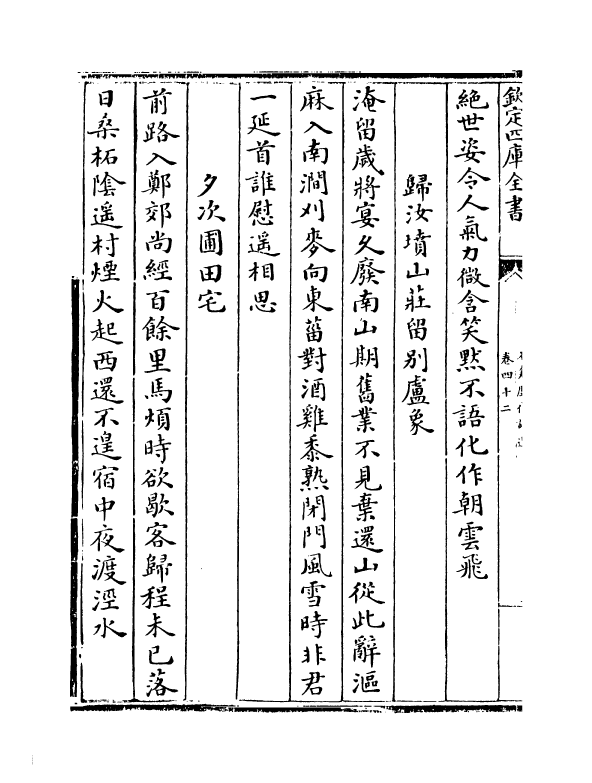 欽定四庫全書
卷四十二
絕世姿令人氣力微含笑默不語化作朝雲飛
歸汝墳山莊留别盧象
淹留歲將宴久廢南山期舊業不見棄還山從此辭漚
麻入南澗刈麥向東菑對酒雞黍熟閉門風雪時非君
一延首誰慰遥相思
夕次圃田宅
前路入鄭郊尚經百餘里馬煩時欲歇客歸程未已落
日桑柘陰遥村煙火起西還不遑宿中夜渡涇水